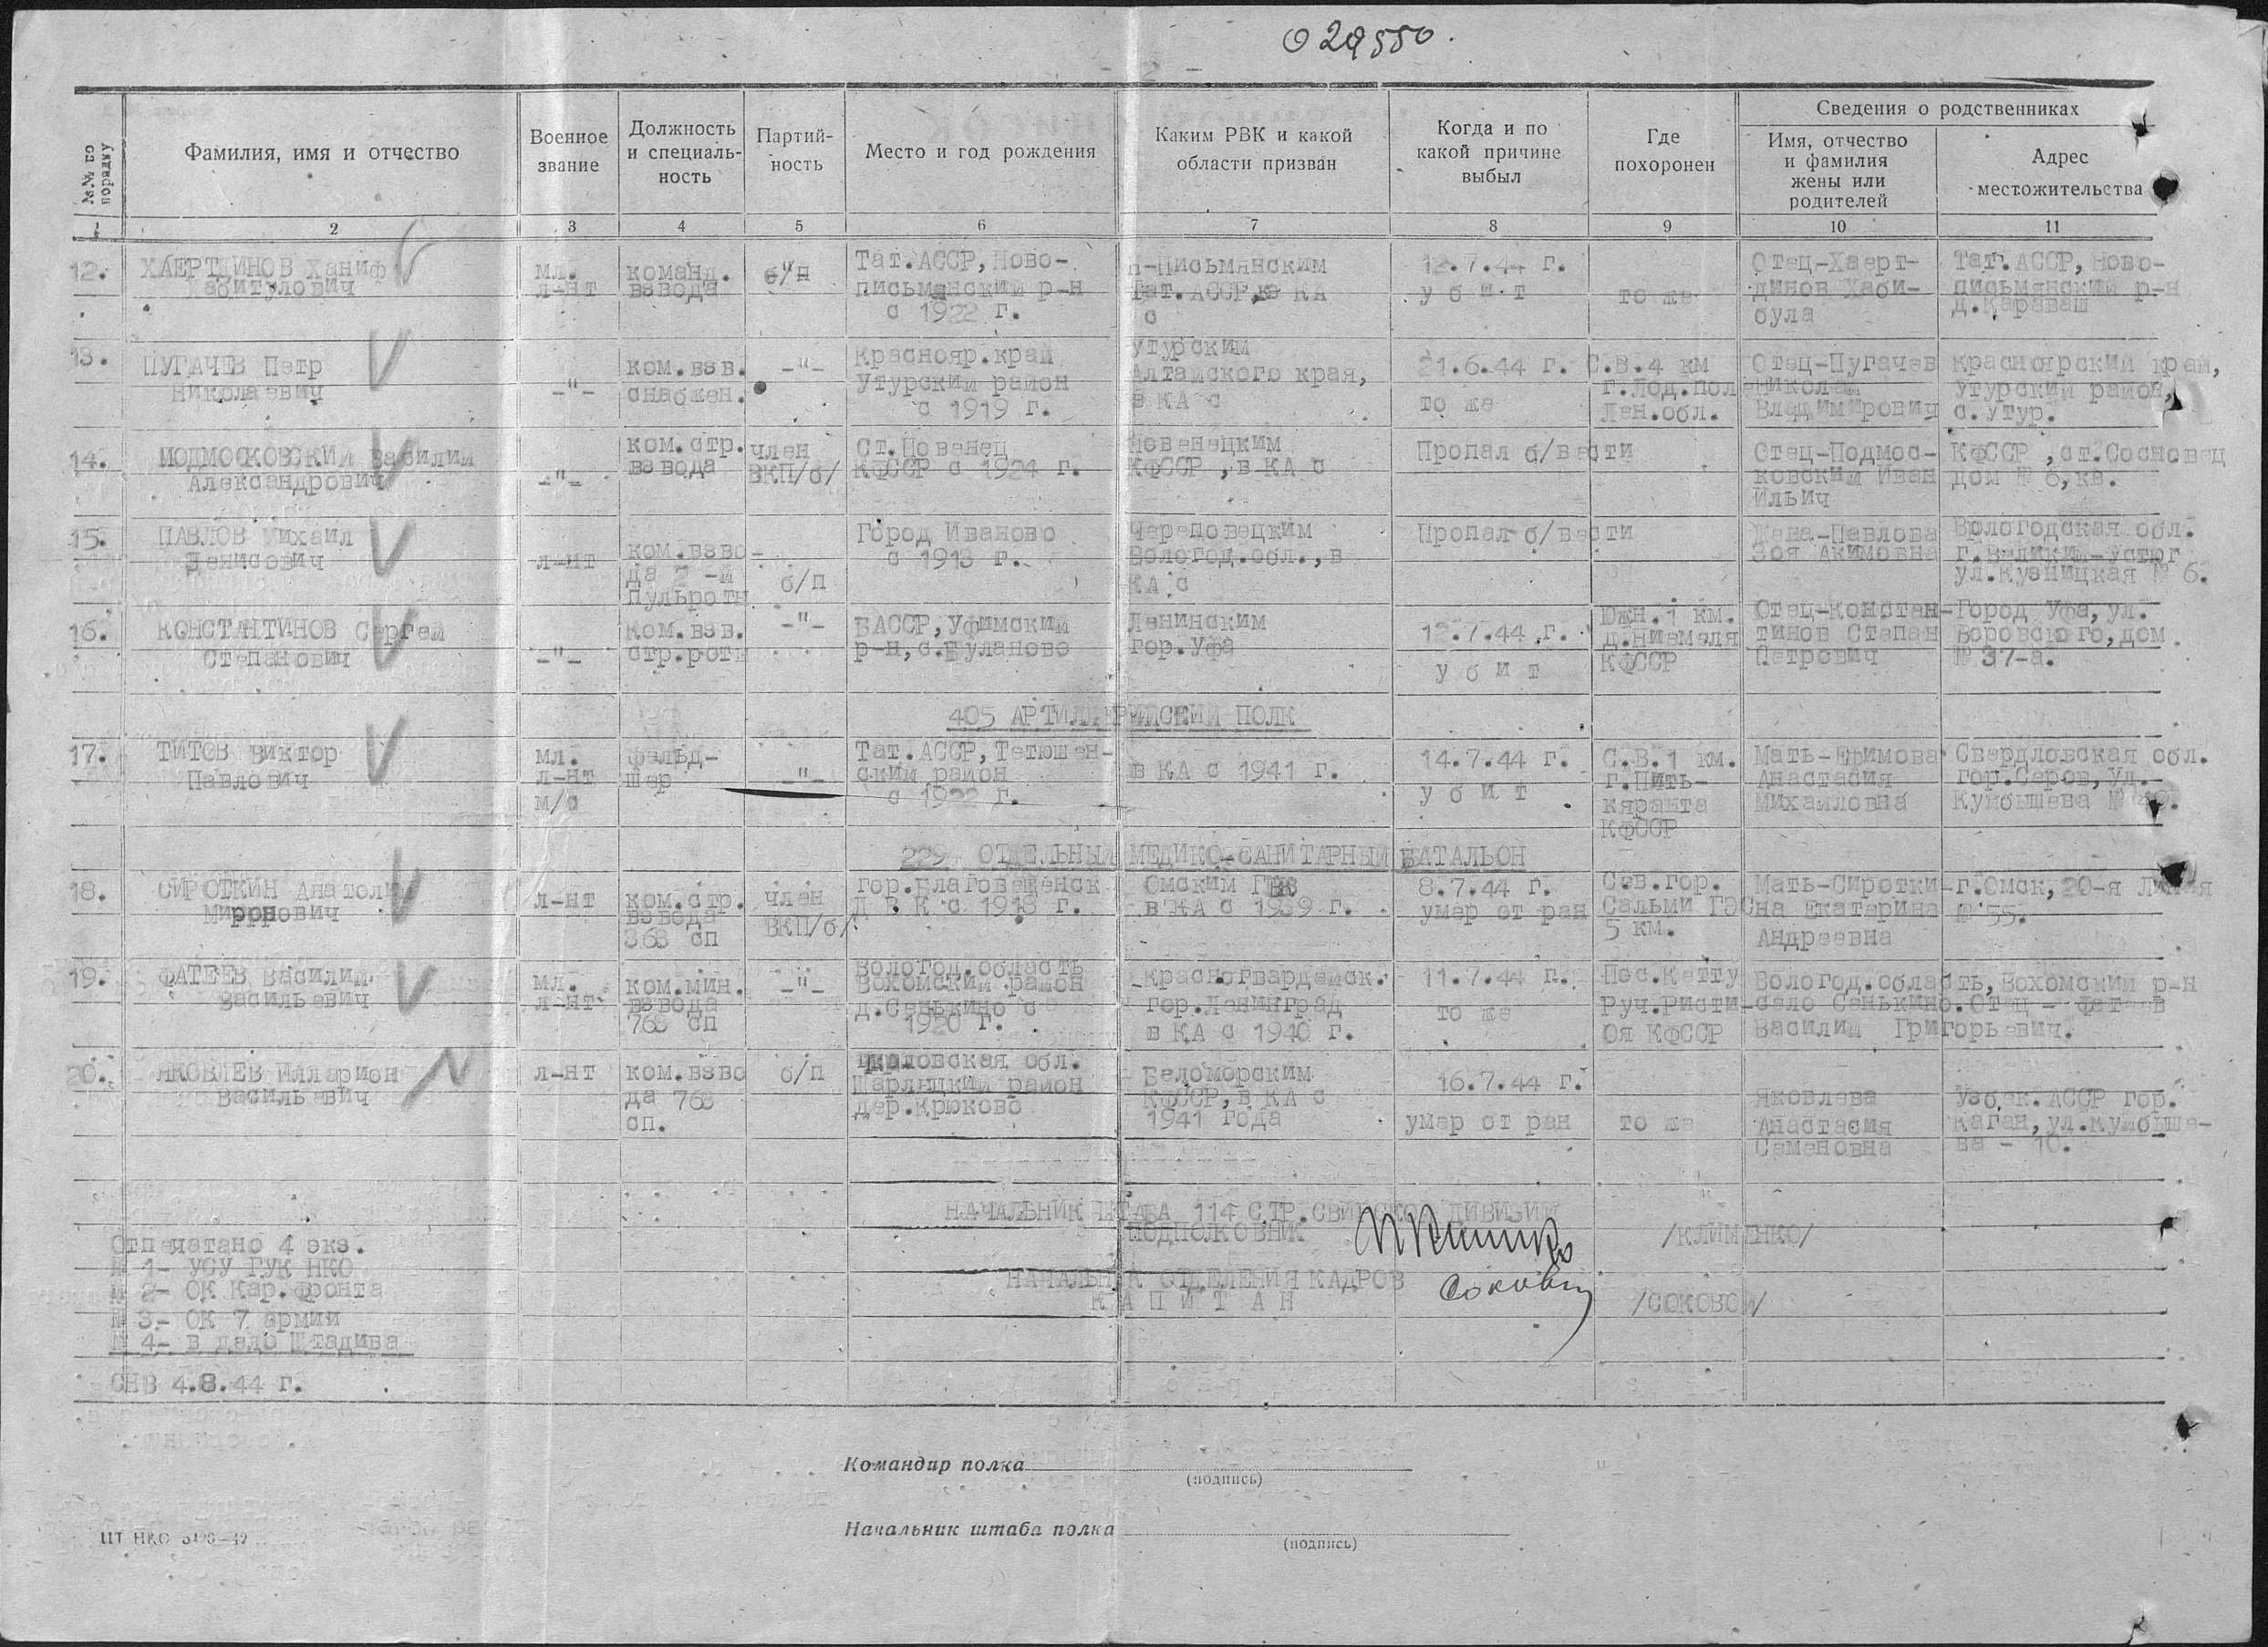 029550.
- 2 -
№№ по порядку
Фамилия, имя и отчество
Военное звание
Должность и специаль-ность
Партий-ность
Место и год рождения
Каким РВК и какой области призван
Когда и по какой причине выбыл
Где похоронен
Сведения о родственниках
Имя, отчество и фамилия жены или родителей
Адрес местожительства
1 2 3 4 5 6 7 8 9 10 11
12. ХАЕРТДИНОВ Ханиф мл. команд. б/п Тат.АССР, Ново- Н-Письмянским 12.7.44 г. Отец-Хаерт- Тат.АССР, Ново-
Хабитулович л-нт взвода письмянский р-н Тат.АССР, в КА у б и т то же динов Хаби- письмянский р-н
с 1922 г. с була д.Караваш
13. ПУГАЧЕВ Петр ком.взв. -"- Краснояр.край Утурским 21.6.44 г. С.В.4 км Отец-Пугачев Красноярский край,
Николаевич -"- снабжен. Утурский район Алтайского края, г.Лод.поле Николай Утурский район,
с 1919 г. в КА с то же Лен.обл. Владимирович с.Утур.
14. ПОДМОСКОВСКИЙ Василий ком.стр. член Ст.Повенец Повенецким Пропал б/вести Отец-Подмос- КФССР, ст.Сосновец
Александрович -"- взвода ВКП/б/ КФССР с 1924 г. КФССР, в КА с ковский Иван дом № 6, кв.
Ильич
15. ПАВЛОВ Михаил Город Иваново Череповецким Пропал б/вести Жена-Павлова Вологодская обл.
Денисович л-нт ком.взво- с 1913 г. Вологод.обл., в Зоя Акимовна г.Великий-Устюг
да 2-й б/п КА с ул.Кузницкая № 6.
пульроты
16. КОНСТАНТИНОВ Сергей ком.взв. -"- БАССР, Уфимский Ленинским 12.7.44 г. Южн.1 км. Отец-Констан- Город Уфа, ул.
Степанович -"- стр.роты р-н, с.Буланово гор.Уфа у б и т д.Ниемеля тинов Степан Воровского, дом
КФССР Петрович № 37-а.
405 АРТИЛЛЕРИЙСКИЙ ПОЛК
17. ТИТОВ Виктор мл. фельд- Тат.АССР, Тетюшен- 14.7.44 г. С.В.1 км. Мать-Ефимова Свердловская обл.
Павлович л-нт шер -"- ский район в КА с 1941 г. у б и т г.Пить- Анастасия гор.Серов, ул.
м/с с 1922 г. кяранта Михайловна Куйбышева №
КФССР
229 ОТДЕЛЬНЫЙ МЕДИКО-САНИТАРНЫЙ БАТАЛЬОН
18. СИРОТКИН Анатолий л-нт ком.стр. член гор.Благовещенск Омским ГВК 8.7.44 г. Сев.гор. Мать-Сироткі- г.Омск, 20-я Линия
Миронович взвода ВКП/б/ Д В К с 1918 г. в КА с 1939 г. умер от ран Сальми ГЭС на Екатерина № 55.
363 сп 5 км. Андреевна
19. ФАТЕЕВ Василий мл. ком.мин. -"- Вологод.область Красногвардейск. 11.7.44 г. Пос.Кетту Вологод.область, Вохомский р-н
Васильевич л-нт взвода Вохомский район гор.Ленинград то же Руч.Ристи- село Сенькино. Отец - Фатеев
763 сп д.Сенькино с 1920 г. в КА с 1940 г. Оя КФССР Василий Григорьевич.
20. ЯКОВЛЕВ Илларион л-нт ком.взво б/п обл. Беломорским 16.7.44 г. Яковлева Узбек.АССР гор.
Васильевич да 763 Шарлыцкий район КФССР, в КА с умер от ран то же Анастасия Каган, ул.Куйбыше-
сп. дер.Крюково 1941 года Семеновна ва - 10.
НАЧАЛЬНИК ШТАБА 114 СТР.СВИРСКОЙ ДИВИЗИИ
ПОДПОЛКОВНИК /КЛИМЕНКО/
НАЧАЛЬНИК ОТДЕЛЕНИЯ КАДРОВ
К А П И Т А Н /СОКОЛОВ/
Отпечатано 4 экз.
№ 1- УСУ ГУК НКО
№ 2- ОК Кар.фронта
№ 3- ОК 7 армии
№ 4- в дело Штадива
СНВ 4.8.44 г.
Командир полка
(подпись)
Начальник штаба полка
(подпись)